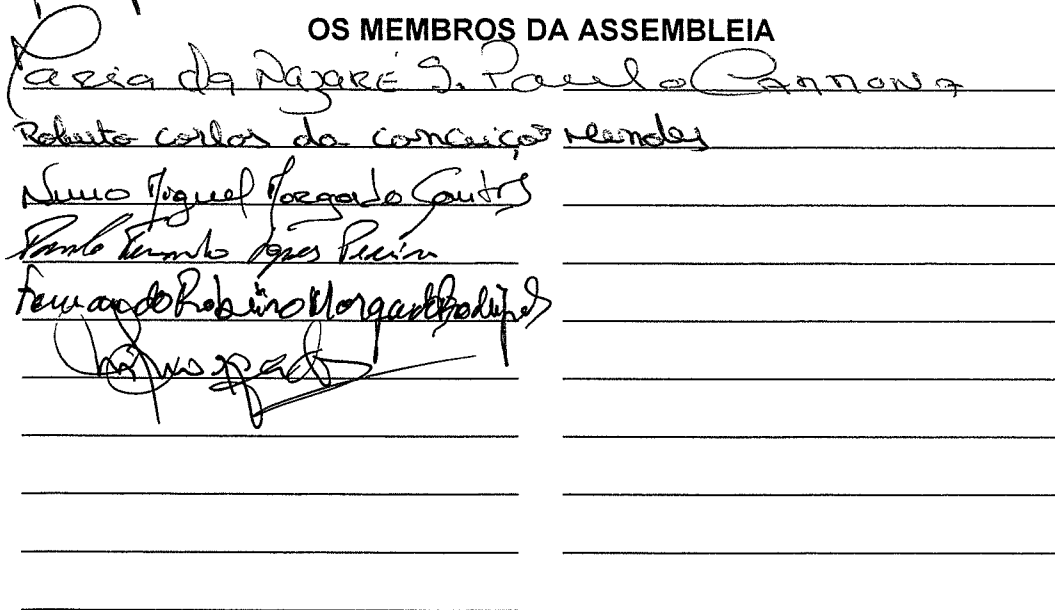 OS MEMBROS DA ASSEMBLEIA
Maria da Nazaré S. Paulo Carmona
Roberto Carlos da Conceição Mendes
Nuno Miguel Morgado
Paulo Lopes Pereira
Fernando Ribeiro Morgado Rodrigues